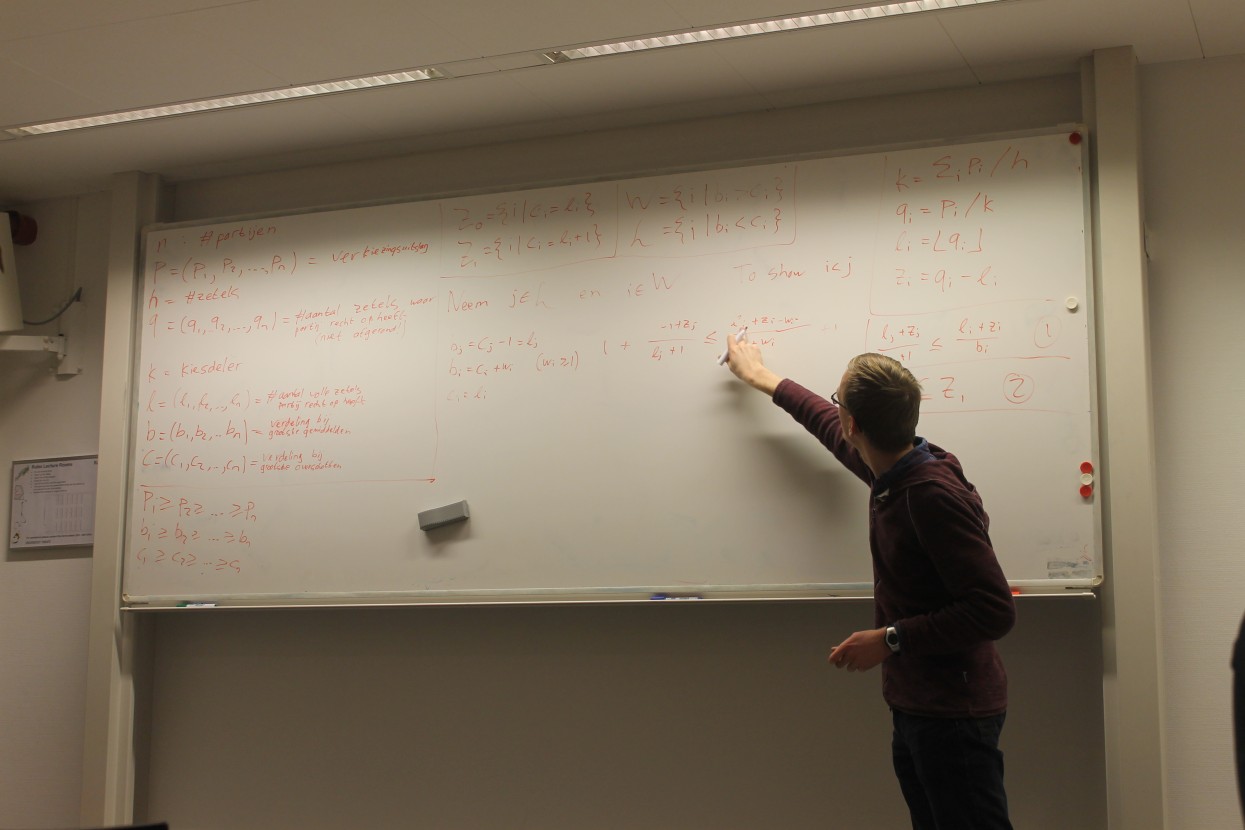 n : #partijen
P = (P₁, P₂, ..., Pₙ) = verkiezingsuitslag
h = #zetels
q = (q₁, q₂, ..., qₙ) = #aantal zetels waar
partij recht op heeft
(niet afgerond!)
k = kiesdeler
l = (l₁, l₂, .., lₙ) = #aantal volle zetels
partij recht op heeft
b = (b₁, b₂, .. bₙ) = verdeling bij
grootste gemiddelden
c = (c₁, c₂, .., cₙ) = verdeling bij
grootste overschotten
P₁ ≥ P₂ ≥ ... ≥ Pₙ
b₁ ≥ b₂ ≥ ... ≥ bₙ
c₁ ≥ c₂ ≥ ... ≥ cₙ
Z₀ = {i | cᵢ = lᵢ}
Z₁ = {i | cᵢ = lᵢ + 1}
W = {i | bᵢ > cᵢ}
= {j | bᵢ < cᵢ}
Neem j ∈ en i ∈ W To show i < j
bⱼ = cⱼ - 1 = lⱼ
bᵢ = cᵢ + wᵢ (wᵢ ≥ 1)
cᵢ = lᵢ
1 + (-1 + zⱼ)/(lⱼ + 1) ≤ + zᵢ - wᵢ
+ wᵢ
k = Σᵢ Pᵢ / h
qᵢ = Pᵢ / k
lᵢ = ⌊qᵢ⌋
zᵢ = qᵢ - lᵢ
lⱼ + zⱼ ≤ (lᵢ + zᵢ)/bᵢ ①
≤ zᵢ ②